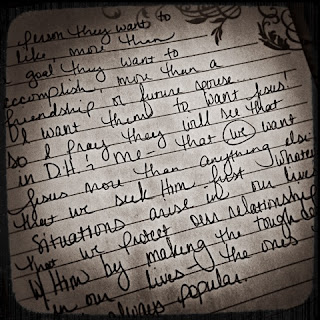 person they want to
like, more than
goal they want to
accomplish, more than a
friendship or future spouse...
I want them to want Jesus!
so I pray they will see that
in D.H. & me - that (we) want
Jesus more than anything else-
that we seek Him first whatever
situations arise in our lives
that we protect our relationship
w/ Him by making the tough de
in our lives - the ones
always popular.